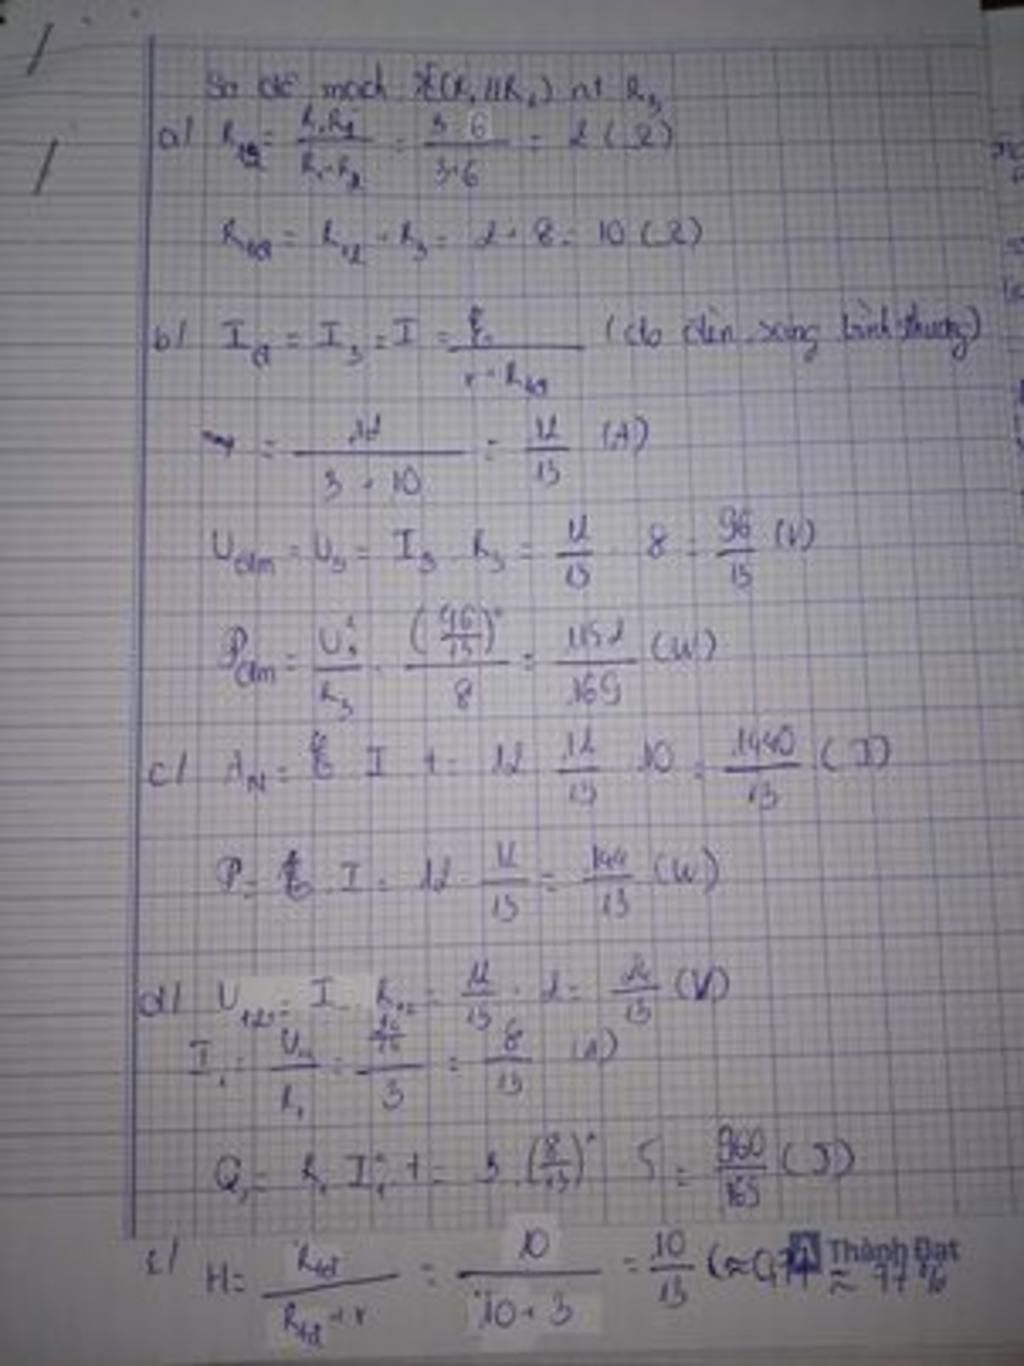 Sơ đồ mạch (R₁//R₂) nt R₃
a/ R₁₂ = R₁.R₂ / R₁+R₂ = 3.6 / 3+6 = 2 (Ω)
Rtđ = R₁₂ + R₃ = 2 + 8 = 10 (Ω)
b/ Iđ = I₃ = I = ξ / r + Rtđ (do đèn sáng bình thường)
= 12 / 3 + 10 = 12/13 (A)
Uđm = U₃ = I₃ . R₃ = 12/13 . 8 = 96/13 (V)
Pđm = U₃² / R₃ = (96/13)² / 8 = 1152/169 (W)
c/ AN = ξ I t = 12 . 12/13 . 10 = 1440/13 (J)
P = ξ . I = 12 . 12/13 = 144/13 (W)
d/ U₁₂ = I . R₁₂ = 12/13 . 2 = 24/13 (V)
I₁ = U₁₂ / R₁ = 24/13 / 3 = 8/13 (A)
Q₁ = R₁ I₁² t = 3 . (8/13)² . 5 = 960/169 (J)
e/ H = Rtđ / Rtđ + r = 10 / 10 + 3 = 10/13 (≈ 0,77
Thành Đạt
≈ 77 %